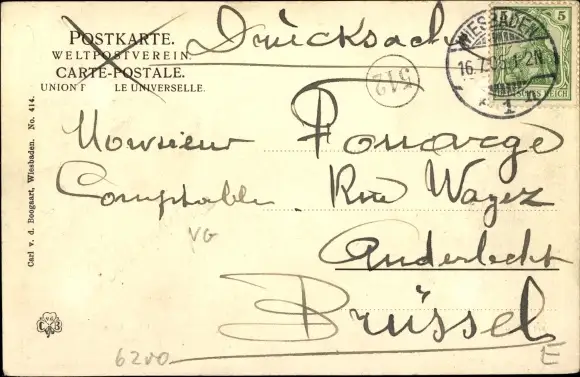 POSTKARTE.
WELTPOSTVEREIN.
CARTE-POSTALE.
UNION P LE UNIVERSELLE.
Drucksach
WIESBADEN
16.7.05.1-2N.
1
5
512
Monsieur Fonarge
Comptable. Rue Wayez
VG
Anderlecht
Brüssel
6200
E
Carl v. d. Boogaart, Wiesbaden. No. 414.